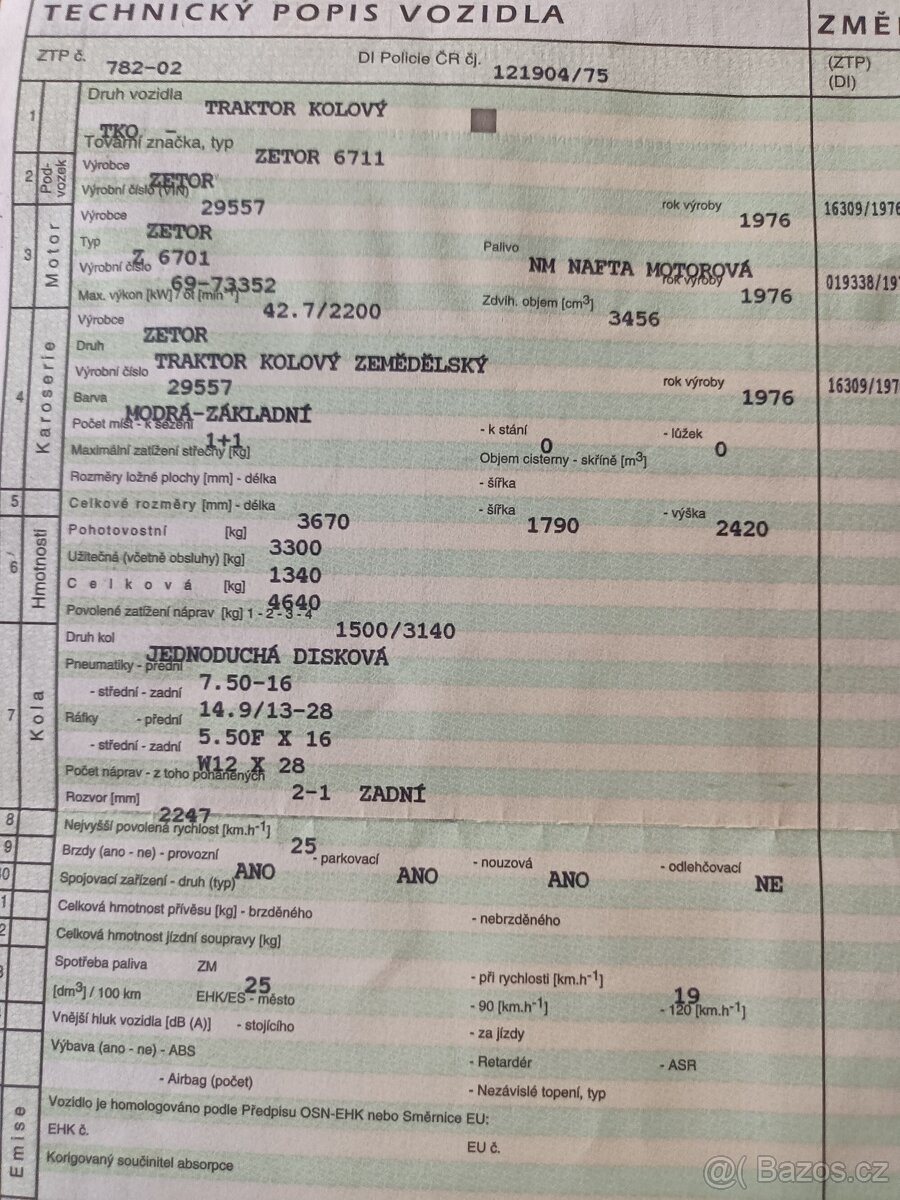 TECHNICKÝ POPIS VOZIDLA
ZMĚ
ZTP č. 782-02 DI Policie ČR čj. 121904/75 (ZTP)
(DI)
1 Druh vozidla TRAKTOR KOLOVÝ
TKO -
Tovární značka, typ ZETOR 6711
2 Pod-vozek Výrobce ZETOR
Výrobní číslo (VIN) 29557 rok výroby 1976 16309/1976
3 Motor Výrobce ZETOR
Typ Z 6701 Palivo NM NAFTA MOTOROVÁ
Výrobní číslo 69-73352 rok výroby 1976 019338/197
Max. výkon [kW] / ot [min⁻¹] 42.7/2200 Zdvih. objem [cm³] 3456
4 Karoserie Výrobce ZETOR
Druh TRAKTOR KOLOVÝ ZEMĚDĚLSKÝ
Výrobní číslo 29557 rok výroby 1976 16309/197
Barva MODRÁ-ZÁKLADNÍ
Počet míst - k sezení 1+1 - k stání 0 - lůžek 0
Maximální zatížení střechy [kg] Objem cisterny - skříně [m³]
Rozměry ložné plochy [mm] - délka - šířka
5 Celkové rozměry [mm] - délka 3670 - šířka 1790 - výška 2420
6 Hmotnosti Pohotovostní [kg] 3300
Užitečná (včetně obsluhy) [kg] 1340
Celková [kg] 4640
Povolené zatížení náprav [kg] 1 - 2 - 3 - 4 1500/3140
7 Kola Druh kol JEDNODUCHÁ DISKOVÁ
Pneumatiky - přední 7.50-16
- střední - zadní 14.9/13-28
Ráfky - přední 5.50F X 16
- střední - zadní W12 X 28
Počet náprav - z toho poháněných 2-1 ZADNÍ
Rozvor [mm] 2247
8 Nejvyšší povolená rychlost [km.h⁻¹] 25
9 Brzdy (ano - ne) - provozní ANO - parkovací ANO - nouzová ANO - odlehčovací NE
0 Spojovací zařízení - druh (typ)
1 Celková hmotnost přívěsu [kg] - brzděného - nebrzděného
2 Celková hmotnost jízdní soupravy [kg]
3 Spotřeba paliva ZM 25 - při rychlosti [km.h⁻¹] 19
[dm³] / 100 km EHK/ES - město - 90 [km.h⁻¹] - 120 [km.h⁻¹]
Vnější hluk vozidla [dB (A)] - stojícího - za jízdy
Výbava (ano - ne) - ABS - Retardér - ASR
- Airbag (počet) - Nezávislé topení, typ
Emise Vozidlo je homologováno podle Předpisu OSN-EHK nebo Směrnice EU:
EHK č. EU č.
Korigovaný součinitel absorpce
@( Bazos.cz